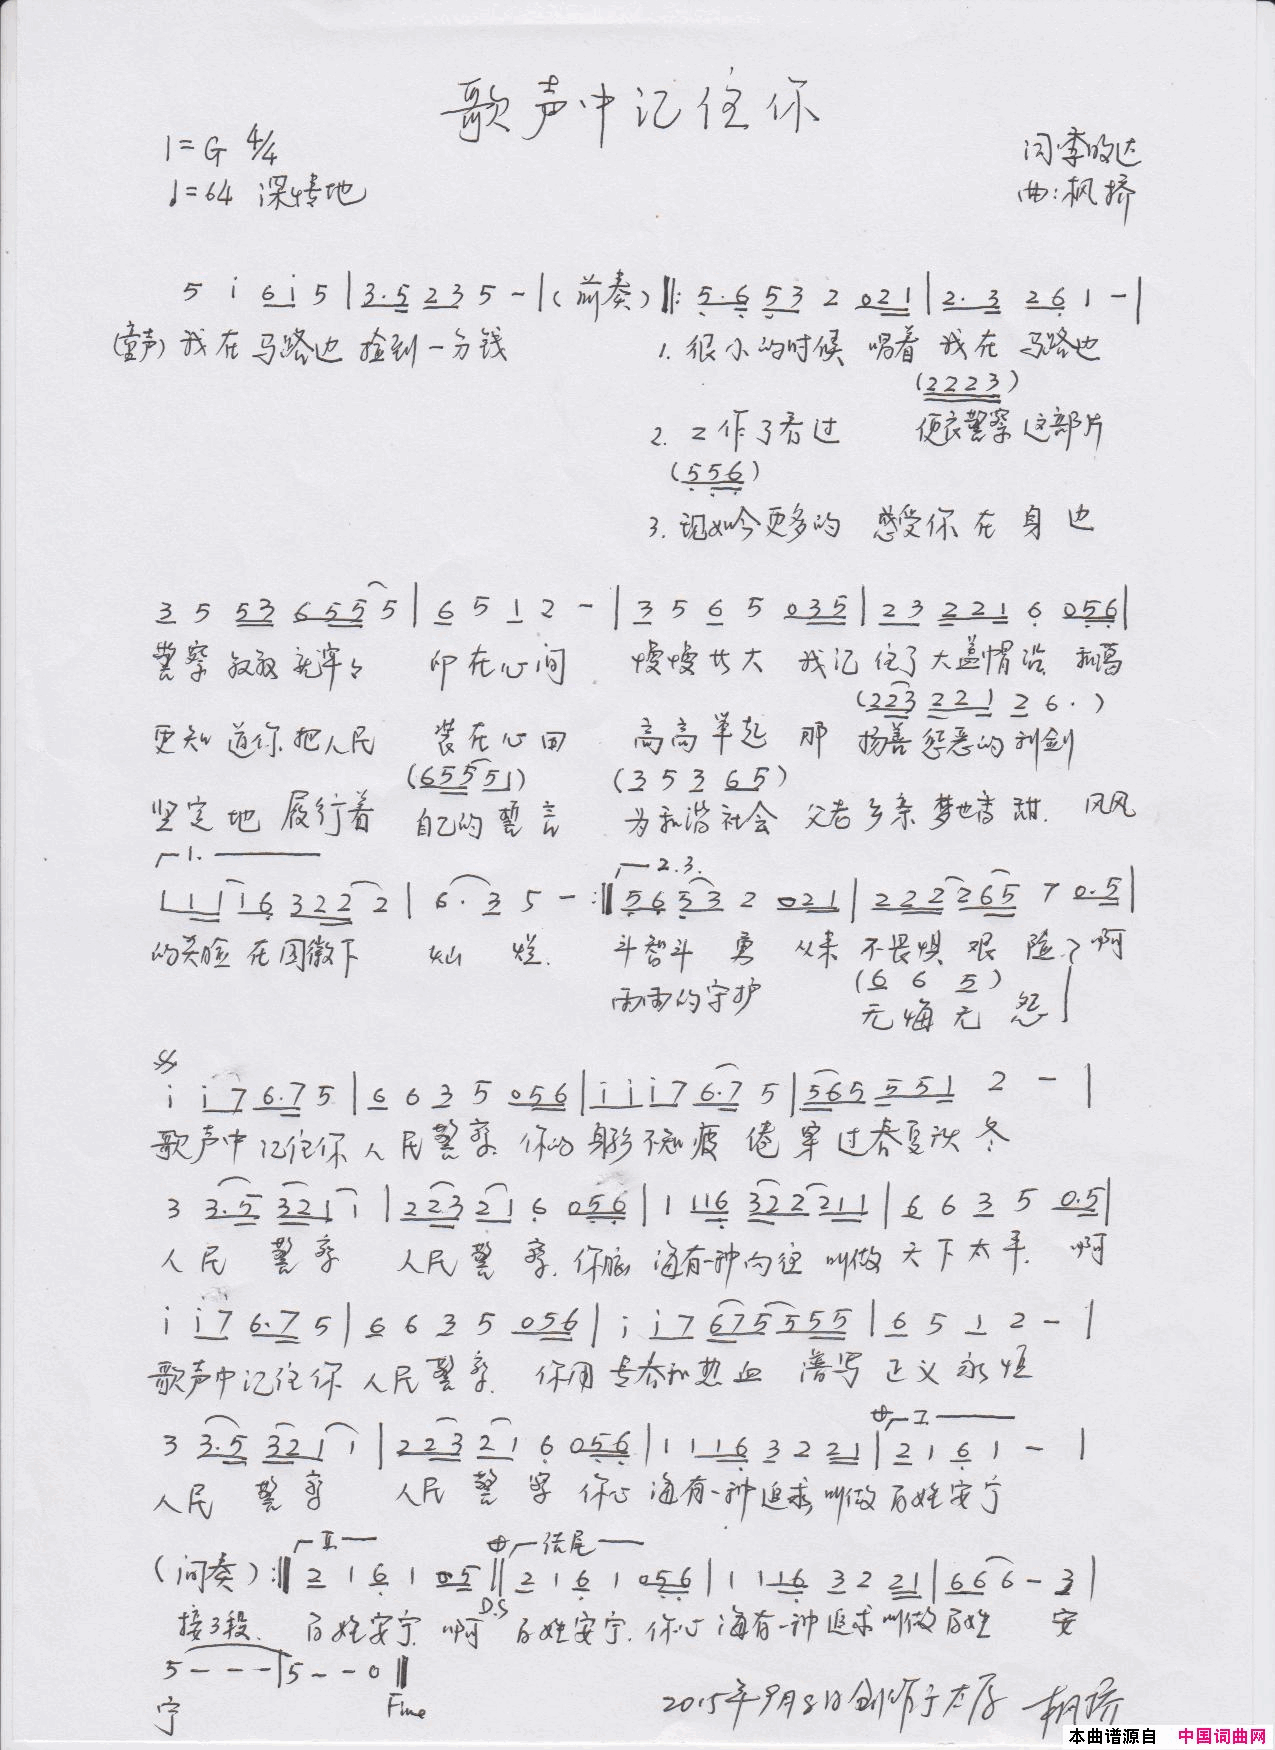 歌声中记住你
1=G 4/4
词:李的达
♩=64 深情地
曲:枫桥
5 i 6i 5 | 3.5 23 5 - | (前奏) ‖: 5.6 53 2 021 | 2.3 26 1 - |
(童声) 我在马路边 捡到一分钱 1. 很小的时候 唱着 我在 马路边
(2223)
2. 工作了看过 便衣警察 这部片
(556)
3. 现如今更多的 感受你在身边
3 5 53 6555 | 6 5 1 2 - | 3 5 6 5 035 | 23 221 6 056 |
警察叔叔就牢牢 印在心间 慢慢长大 我记住了大盖帽沿 和蔼
(223 221 2 6.)
更知道你把人民 装在心田 高高举起 那 扬善惩恶的利剑
(65551) (3 5 3 65)
坚定地履行着 自己的誓言 为和谐社会 父老乡亲梦也香甜. 风风
1.
2.3.
111 16 3222 2 | 6. 3 5 - :‖ 5653 2 021 | 222265 7 0.5 |
的笑脸在国徽下 灿烂. 斗智斗勇 从来不畏惧艰险 啊
(6 6 5)
雨雨的守护 无悔无怨
i i7 6.7 5 | 6 6 3 5 056 | i i i7 6.7 5 | 565 551 2 - |
歌声中记住你 人民警察. 你的身影不知疲倦 穿过春夏秋冬
3 3.5 321 1 | 223 21 6 056 | 1 116 322211 | 6 6 3 5 0.5 |
人民警察 人民警察. 你脑海有一种向往 叫做天下太平. 啊
i i7 6.7 5 | 6 6 3 5 056 | i i7 675555 | 6 5 1 2 - |
歌声中记住你 人民警察. 你用青春和热血 谱写正义永恒
I.
3 3.5 321 1 | 223 21 6 056 | 1 1 16 3 2 21 | 2 1 6 1 - |
人民警察 人民警察 你心海有一种追求 叫做百姓安宁
II.
结尾
(间奏) :‖ 2 1 6 1 05 ‖ 2 1 6 1 056 | 1 116 32 21 | 666 - 3 |
D.S
接3段. 百姓安宁. 啊 百姓安宁. 你心海有一种追求叫做百姓 安
5 - - - | 5 - - 0 ‖
宁 Fine
2015年9月8日创作于太原 枫桥
本曲谱源自 中国词曲网